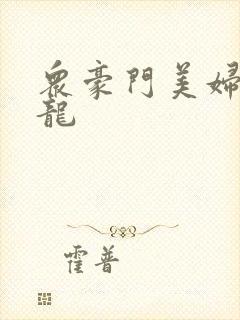 眾豪門美婦
龍
霍普